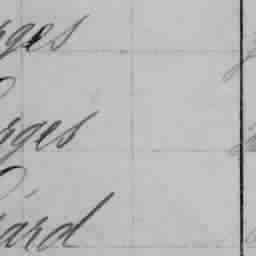 rges
rges
iard